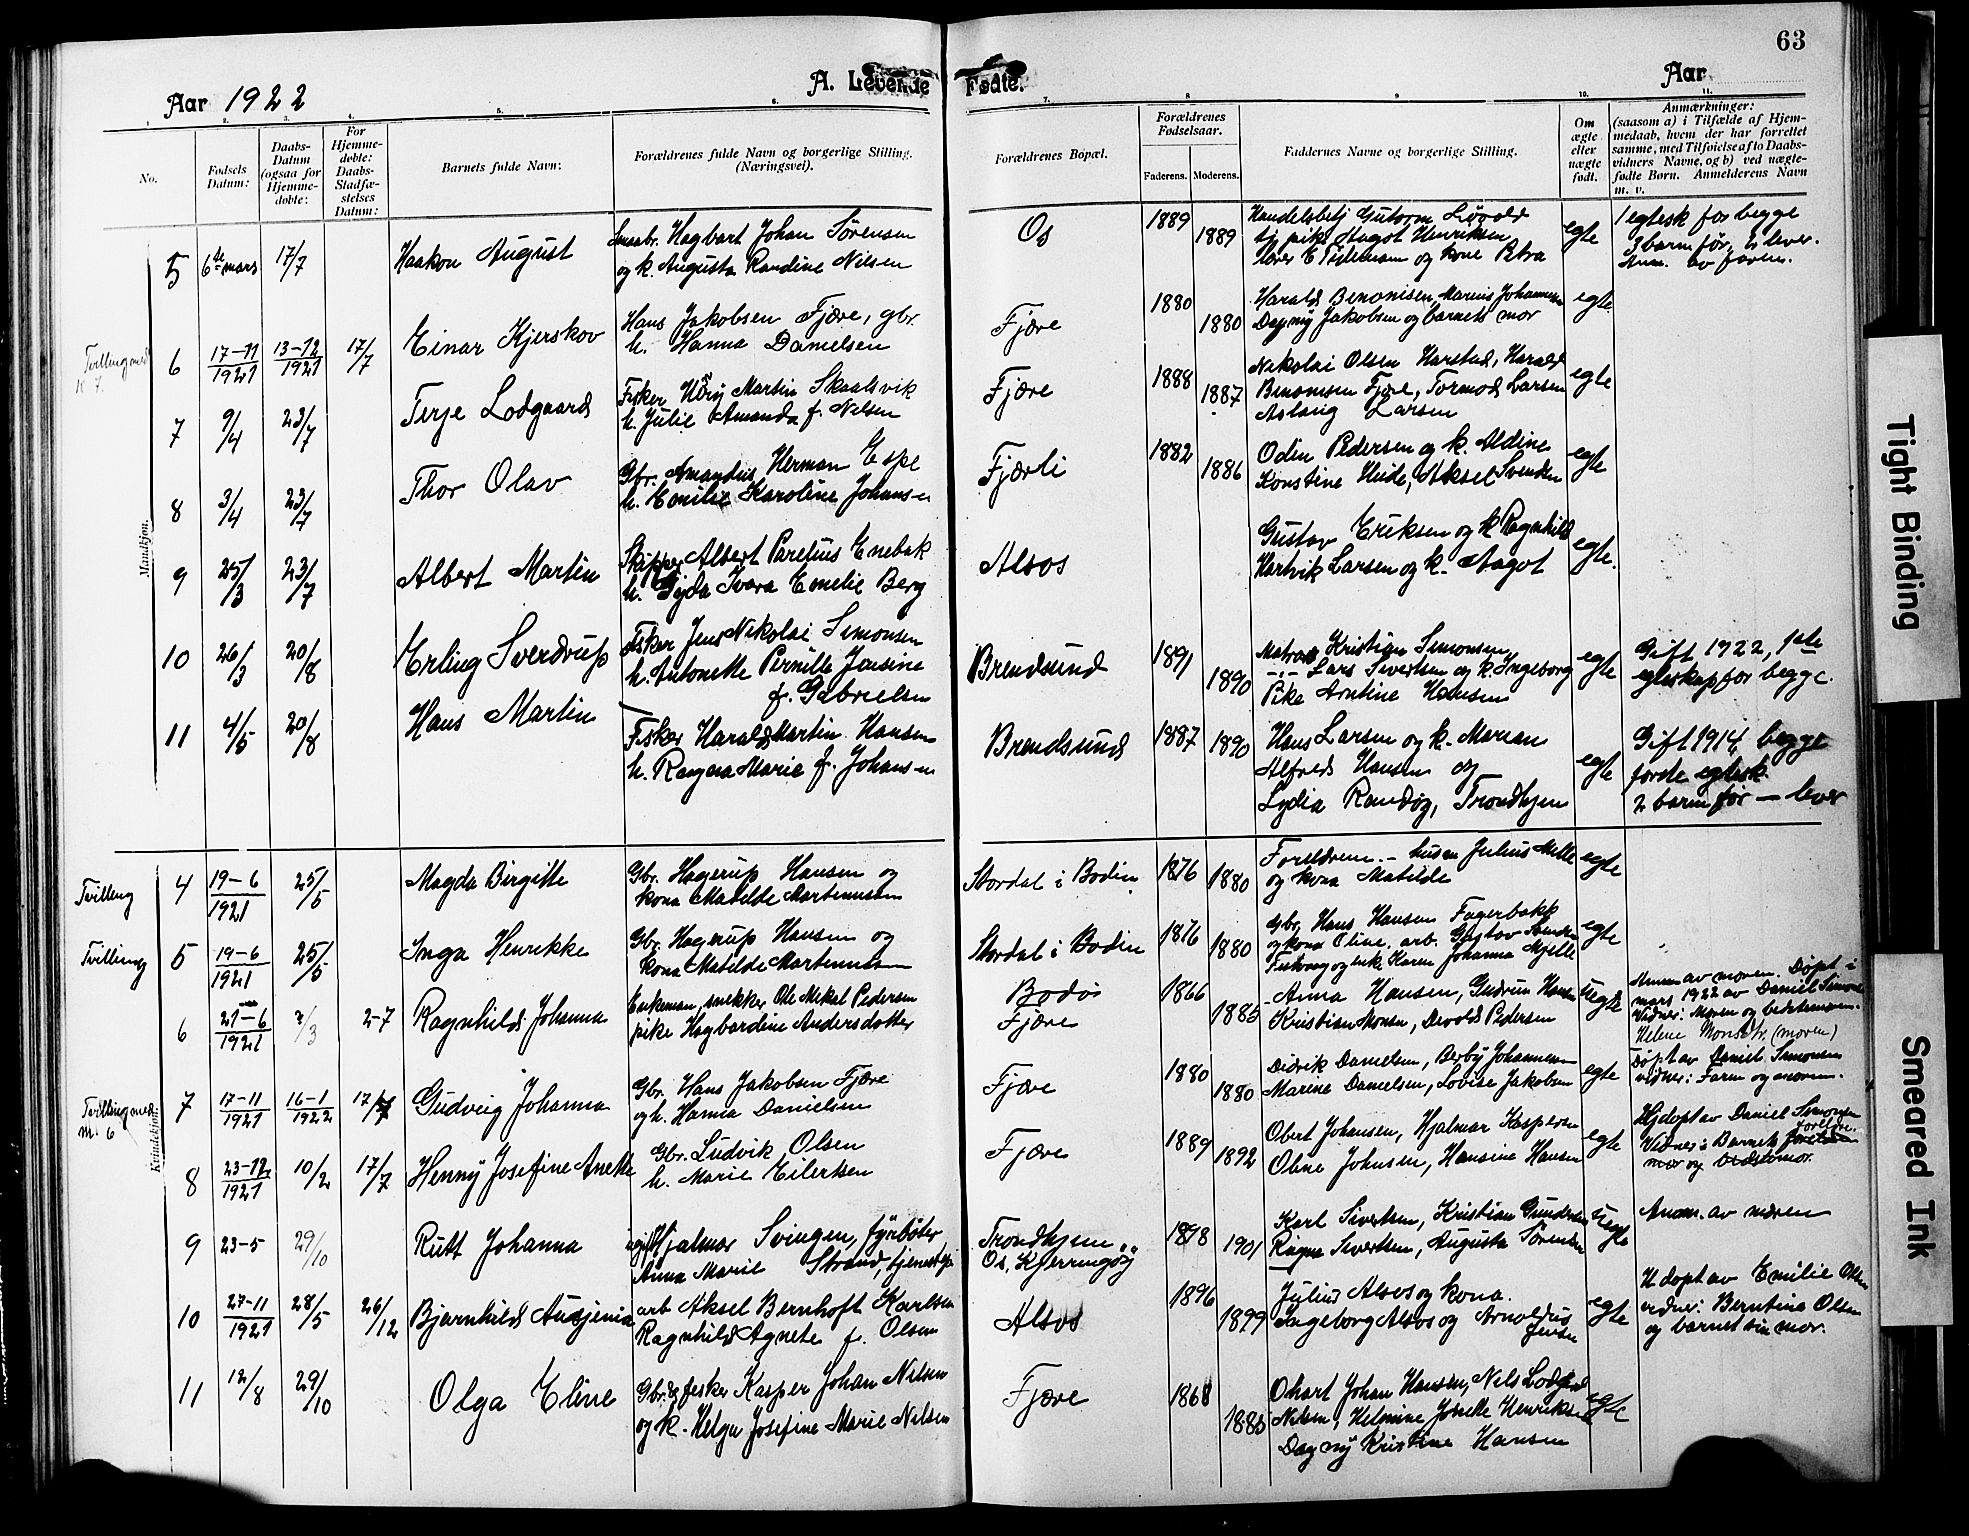 63
A. Levende Fødte.
Aar 1922
Aar
1. 2. 3. 4. 5. 6. 7. 8 9 10. 11.
No.
Fødsels Datum:
Daabs-Datum (ogsaa for Hjemmedøbte:
For Hjemmedøbte: Daabs-Stadfæstelses Datum:
Barnets fulde Navn:
Forældrenes fulde Navn og borgerlige Stilling. (Næringsvei).
Forældrenes Bopæl.
Forældrenes Fødselsaar.
Faderens. Moderens.
Faddernes Navne og borgerlige Stilling.
Om ægte eller uægte født.
Anmærkninger: (saasom a) i Tilfælde af Hjemmedaab, hvem der har forrettet samme, med Tilføielse af to Daabsvidners Navne, og b) ved uægtefødte Børn. Anmelderens Navn m. v.
Mandkjøn.
5 6te mars 17/7 Haakon August
Smaabr. Hagbart Johan Sørensen
og k. Augusta Randine Nilsen
Os 1889 1889
Handelsbetj Gutorm
tj pike Aagot Henriksen
og kone Petra
egte
1 egtesk for begge
3 barn før, 2 lever.
Anm. av faren.
Tvilling med
K 7.
6 17-11/1921 13-12/1921 17/7 Einar Kjerskov
Hans Jakobsen Fjære, gbr.
h. Hanna Danielsen
Fjære 1880 1880
Harald Benonisen, Marius Johannesen
Dagny Jakobsen og barnets mor
egte
7 9/4 23/7 Terje Lodgaard
Fisker Martin Skaalsvik
h. Julie Amanda f. Nilsen
Fjære 1888 1887
Nikolai Olsen Harstad, Harald
Benonisen Fjære, Tormod Larsen
Aslaug Larsen
egte
8 3/4 23/7 Thor Olav
Gbr. Amandus Herman Espe
h. Emilie Karoline Johansen
Fjærli 1882 1886
Odin Pedersen og k. Aldine
Konstine Heide, Aksel Svendsen
egte
9 25/3 23/7 Albert Martin
Skipper Albert Parelius Enebak
h. Gyda Ivara Emelie Berg
Alsos
Gustav Eriksen og k Ragnhild
Hartvik Larsen og k. Aagot
egte.
10 26/3 20/8 Erling Sverdrup
Fisker Jens Nikolai Simonsen
h. Antonette Pernille Jensine
f. Gabrielsen
Brendsund 1891 1890
Matros Kristian Simonsen
-"- Lars Sivertsen og k. Ingeborg
Pike Arntine Hansen
egte
Gift 1922, 1ste
egteskap for begge.
11 4/5 20/8 Hans Martin
Fisker Harald Martin Hansen
h. Ragna Marie f. Johansen
Brendsund 1887 1890
Hans Larsen og k. Marian
Alfred Hansen og
Lydia Randøy, Trondhjem
egte
Gift 1914, begge
første egtesk.
2 barn før — lever
Kvindekjøn.
Tvilling
4 19-6/1921 25/5 Magda Birgitte
Gbr. Hagerup Hansen og
kona Matilde Martinussen
Stordal i Bodin 1876 1880
Foreldrene. - husm Julius Melle
og kona Matilde
egte
Tvilling
5 19-6/1921 25/5 Inga Henrikke
Gbr. Hagerup Hansen og
kona Matilde Martinussen
Stordal i Bodin 1876 1880
Gbr. Hans Hansen Fagerbakk
og kona Oline. arb. Gustav
og enke Karen Johanna Mjelle
egte
6 21-6/1921 2/3 2-7 Ragnhild Johanna
Enkeman, snekker Ole Mikal Pedersen
pike Hagbardine Andersdotter
Bodø
Fjære
1866 1885
Anna Hansen, Gudrun Hansen
Kristian Monsen, Devold Pedersen
Uegte
Anm av moren. Døpt i
mars 1922 av Daniel Simons
Vidner: Moren og bedstemoren.
Helene Monsdtr. (moren)
Tvilling med
M. 6
7 17-11/1921 16-1/1922 17/7 Gudveig Johanna
Gbr. Hans Jakobsen Fjære
og h. Hanna Danielsen
Fjære 1880 1880
Didrik Danielsen, Berby Johannesen
Marene Danielsen, Lovise Jakobsen
egte
Døpt av Daniel Simonsen
vidner: Faren og moren.
8 23-12/1921 10/2 17/7 Henny Josefine Anette
Gbr. Ludvik Olsen
h. Marie Eilertsen
Fjære 1889 1892
Obert Johansen, Hjalmar Kaspersen
Oline Johnsen, Hansine Hansen
egte
Hjdøpt av Daniel Simonsen
Vidner: Barnets foreldre.
mor og bedstemor.
9 23-5 29/10 Rutt Johanna
ugift Hjalmar Svingen, fyrbøter
Anna Marie Strand, tjenestepi
Trondhjem
Os, Kjerringøy
1898 1901
Karl Sivertsen, Kristian Gundersen
Ragna Sivertsen, Augusta Sørensen
Uegte
Anm. av moren
10 27-11/1921 28/5 26/12 Bjarnhild Ausjenia
arb Aksel Bernhoft Karlsen
Ragnhild Agnete f. Olsen
Alsos 1896 1899
Julius Alsos og kona.
Ingeborg Alsos og Arnoldus
Jensen
egte
Hdøpt av Emilie Olsen
vidner: Berntina Olsen
og barnet sin mor.
11 12/8 29/10 Olga Eline
Gbr. & fisker Kasper Johan Nilsen
og k. Helga Josefine Marie Nilsen
Fjære 1868 1885
Ohart Johan Hansen, Nils Lodgard
Nilsen, Helmine Josette Henriksen
Dagny Kristine Hansen
egte
Tight Binding
Smeared Ink